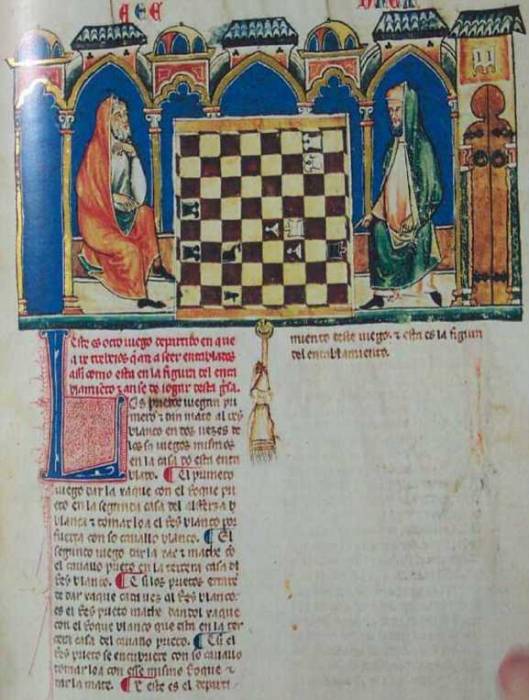 Este es otro iuego departido en que
a trebeios q an a seer entablados
assi como esta en la figura del enta
blamiento & an se de iogar desta gisa.
Los prietos iuegan pri
mero & dan mate al rey
blanco en dos uezes de
los sos iuegos mismos
en la casa do esta enta
blado. El primero
iuego dar la xaque con el Roque pri
eto en la segunda casa del alfferza
blanca & tomar loa el Rey blanco por
fuerça con so cauallo blanco. El
segundo iuego dar la xac & mathe
el cauallo prieto en la tercera casa del
Rey blanco. E si los prietos errare
de dar xaque cada uez al Rey blanco:
es el Rey prieto mathe dandol xaque
con el Roque blanco que esta en la ter
cera casa del cauallo prieto. E si el
Rey prieto se encubriere con so cauallo
tomar loa con esse mismo Roque &
dar la mate. E este es el departi
miento deste iuego. & esta es la figura
del entablamiento.